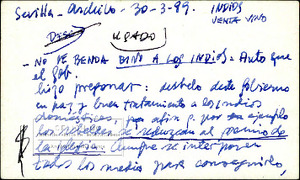 Sevilla - Archivo - 30-3-99. INDIOS
VENTA VINO
USADO
- NO SE BENDA BINO A LOS INDIOS = Auto que
el Gob.
hizo pregonar: desvelo deste Gobierno
en paz y buen tratamiento a los indios
domésticos, por afin q. por su ejemplo
los rebeldes se reduzcan al gremio de
la iglesia. Siempre se interponen
todos los medios para conseguirlo,